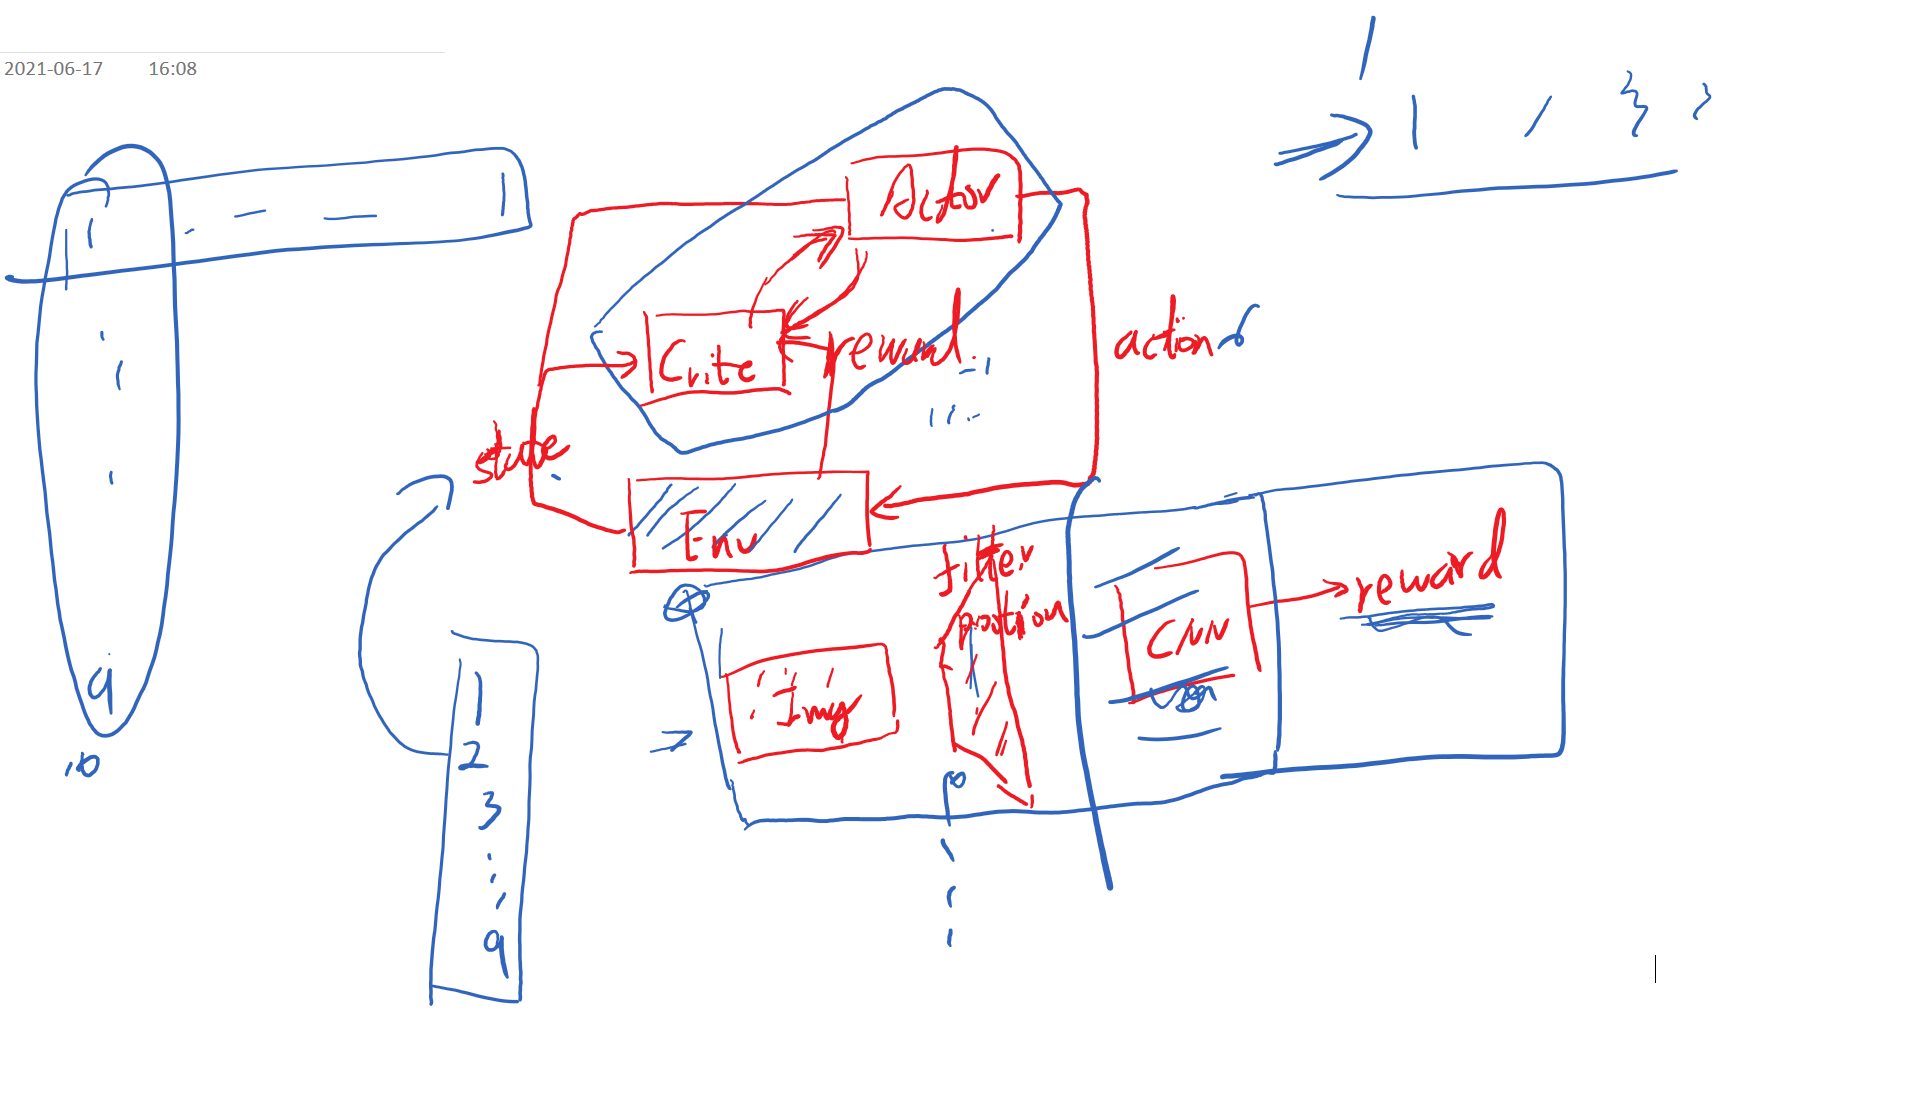 2021-06-17 16:08
Actor
Crite
reward
action
state
Env
filter
position
Img
CNN
reward
1
9
10
1
2
3
9